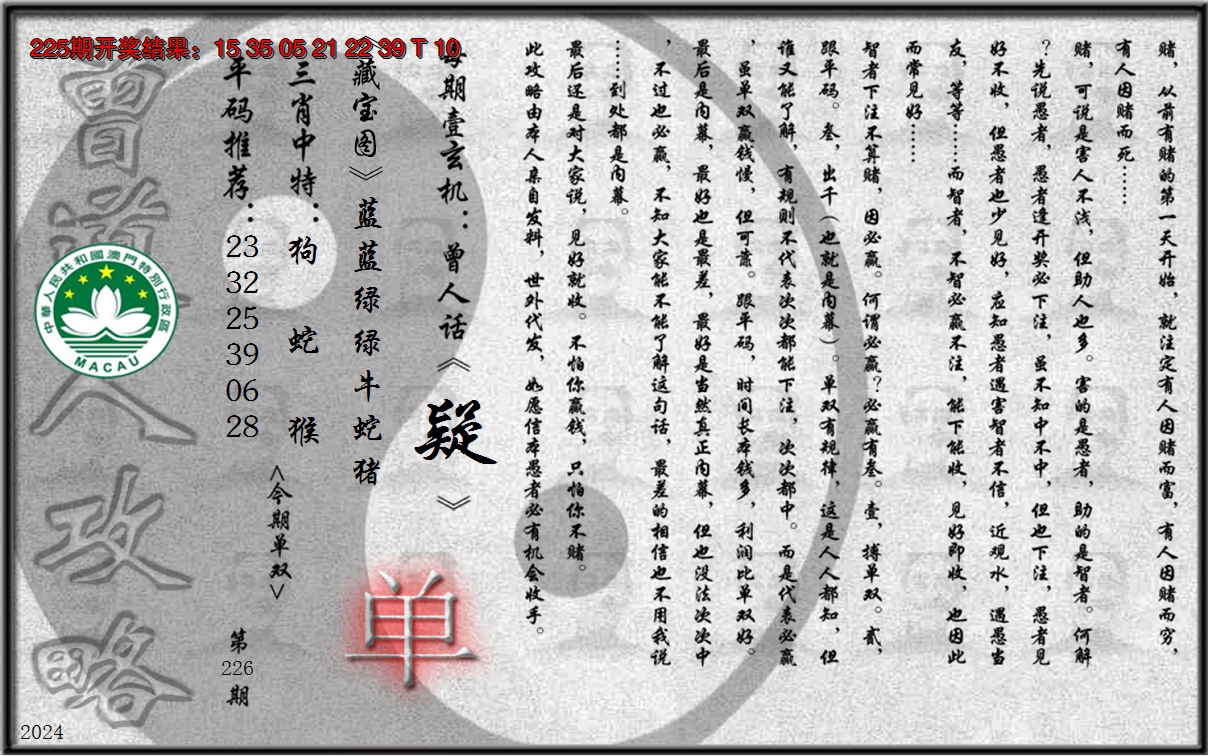 225期开奖结果：15 35 05 21 22 39 T 10
赌，从前有赌的第一天开始，就注定有人因赌而富，有人因赌而穷，
有人因赌而死……
赌，可说是害人不浅，但助人也多。害的是愚者，助的是智者。何解
？先说愚者，愚者逢开奖必下注，虽不知中不中，但也下注，愚者见
好不收，但愚者也少见好，应知愚者遇害智者不信，近观水，遇愚当
友，等等……而智者，不智必赢不注，能下能收，见好即收，也因此
而常见好……
智者下注不算赌，因必赢。何谓必赢？必赢有叁。壹，搏单双。贰，
跟平码。叁，出千（也就是内幕）。单双有规律，这是人人都知，但
谁又能了解，有规则不代表次次都能下注，次次都中。而是代表必赢
，虽单双赢钱慢，但可靠。跟平码，时间长本钱多，利润比单双好。
最后是内幕，最好也是最差，最好是当然真正内幕，但也没法次次中
，不过也必赢，不知大家能不能了解这句话，最差的相信也不用我说
……到处都是内幕。
最后还是对大家说，见好就收。不怕你赢钱，只怕你不赌。
此攻略由本人亲自发料，世外代发，如愿信本愚者必有机会收手。
每期壹玄机：曾人话《疑》
《藏宝图》蓝蓝绿绿牛蛇猪
单
三肖中特：狗 蛇 猴
<今期单双>
平码推荐：23 32 25 39 06 28
第226期
曾道人攻略
中華人民共和國澳門特別行政區
MACAU
2024